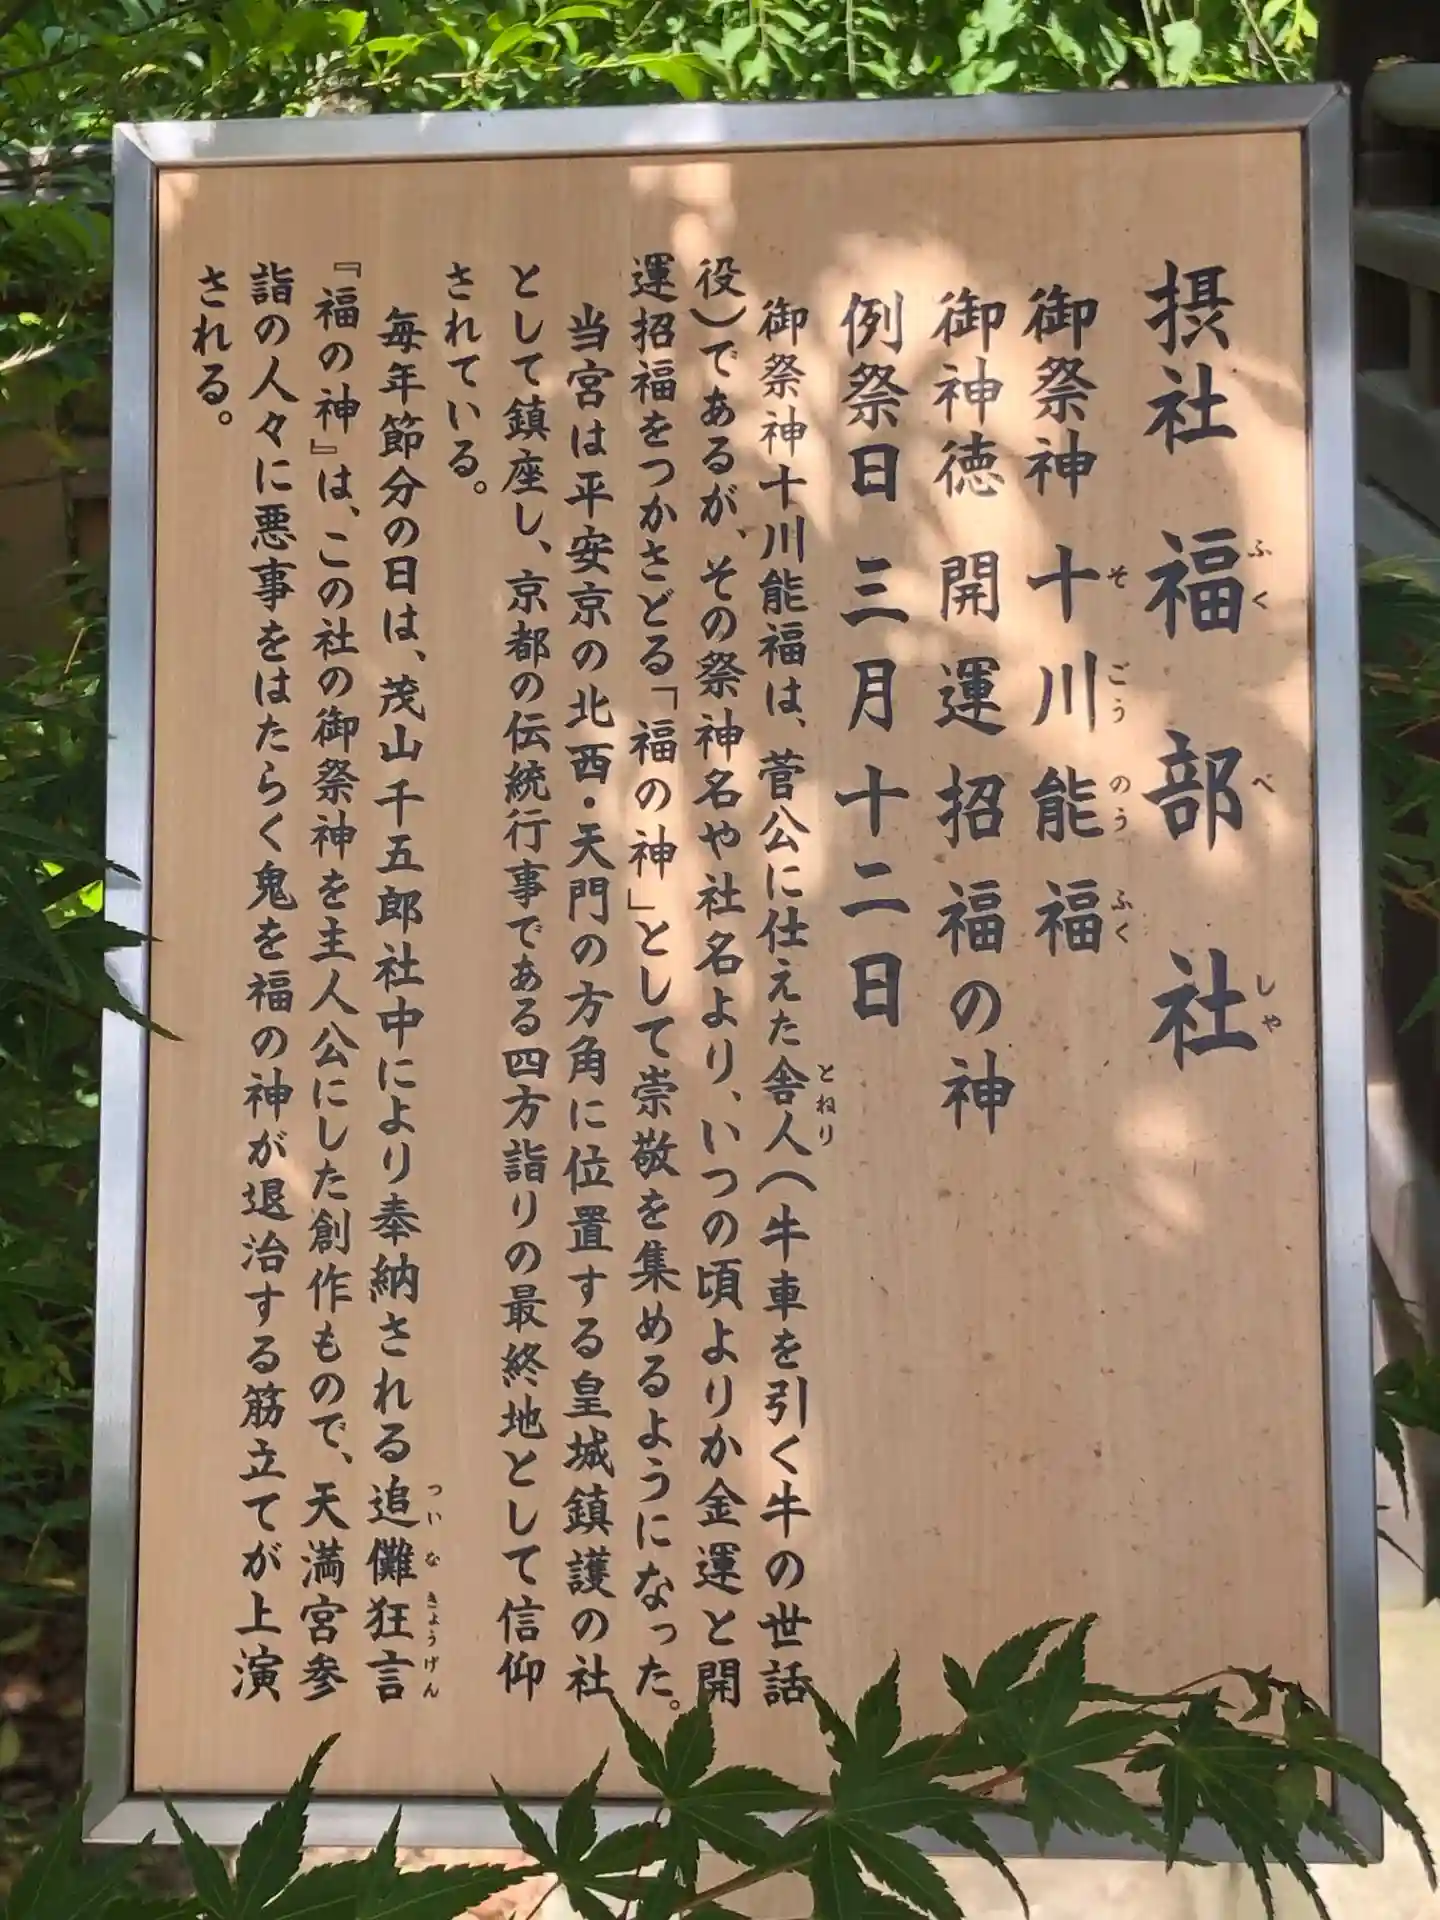 摂社 福部社
ふくべしや
御祭神 十川能福
そごうのうふく
御神徳 開運招福の神
例祭日 三月十二日
御祭神十川能福は、菅公に仕えた舎人(牛車を引く牛の世話
とねり
役)であるが、その祭神名や社名より、いつの頃よりか金運と開
運招福をつかさどる「福の神」として崇敬を集めるようになった。
当宮は平安京の北西・天門の方角に位置する皇城鎮護の社
として鎮座し、京都の伝統行事である四方詣りの最終地として信仰
されている。
毎年節分の日は、茂山千五郎社中により奉納される追儺狂言
ついなきょうげん
『福の神』は、この社の御祭神を主人公にした創作もので、天満宮参
詣の人々に悪事をはたらく鬼を福の神が退治する筋立てが上演
される。